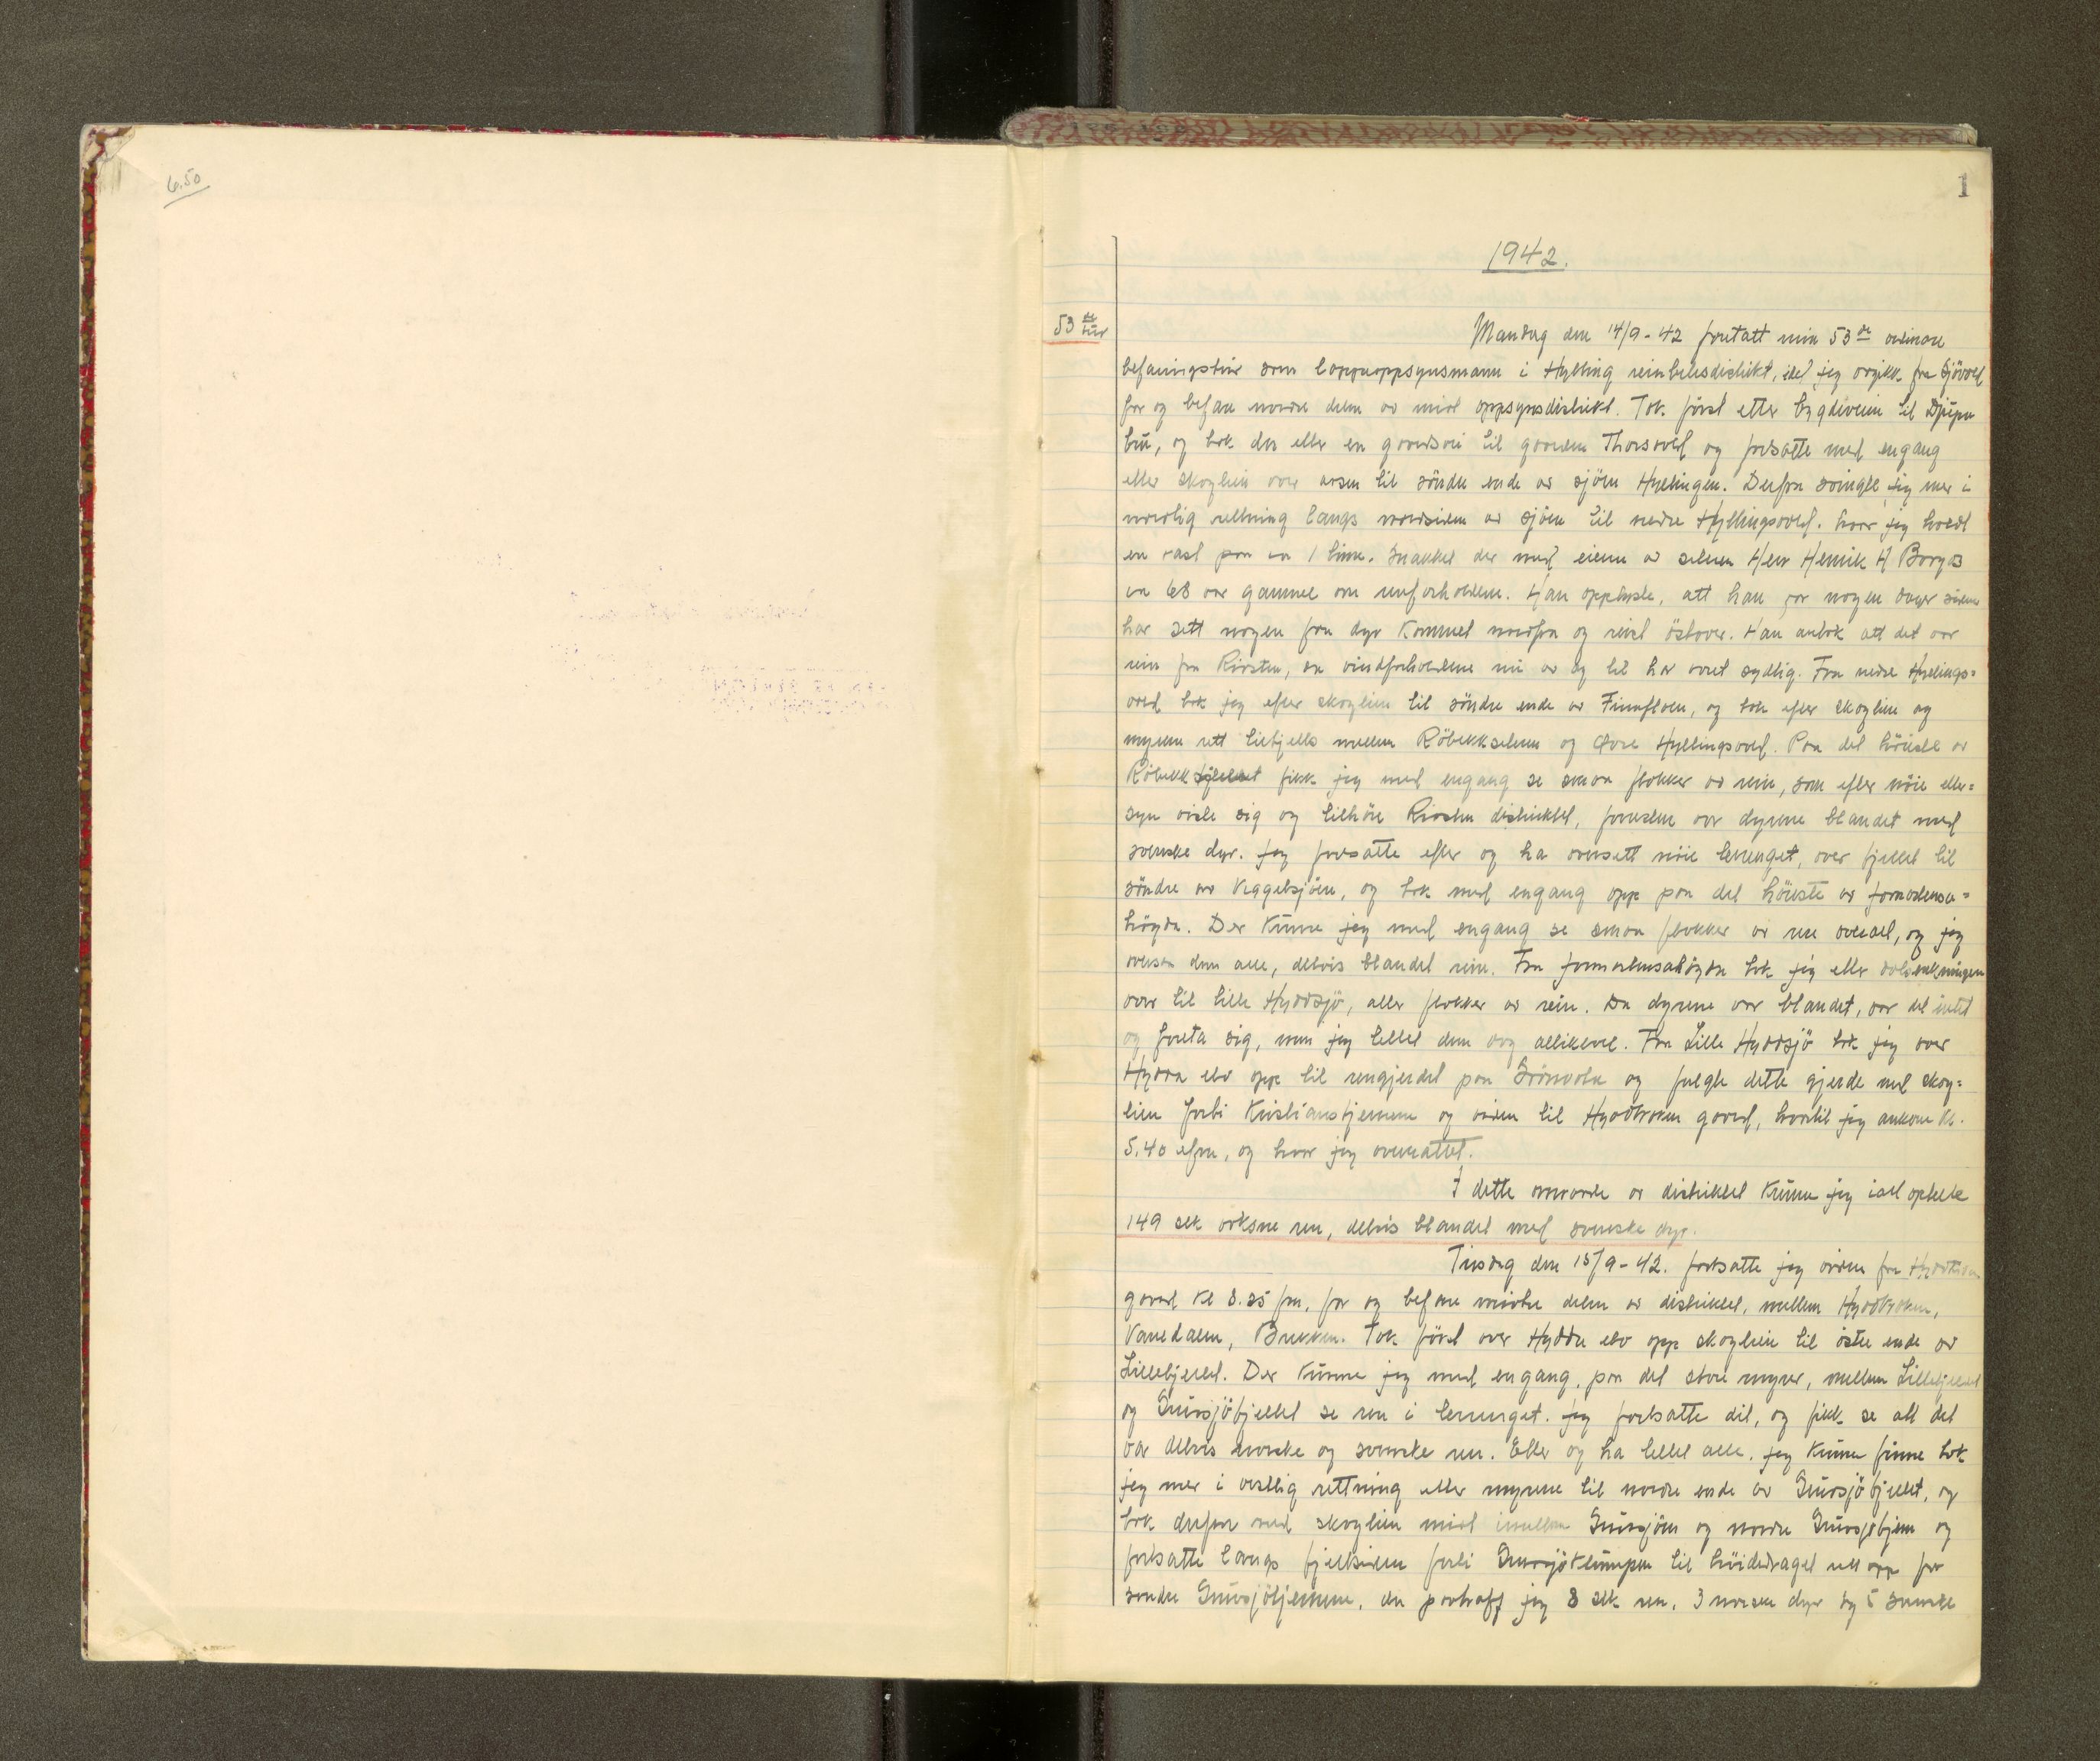 6.50
1
1942.
53 de tur
Mandag den 14/9-42 foretatt min 53 de ordinære
befaringstur som lappoppsynsmann i Hylling reinbetesdistrikt, idet jeg avgikk fra Sjövold
for og befare nordre delen av mitt oppsynsdistrikt. Tok först etter bygdeveien til Djupu
bru, og tok der etter en gaardsvei til gaarden Thorsvold og fortsatte med engang
etter skoglien over aasen til söndre ende av sjöen Hyllingen. Derfra svingte jeg mer i
nordlig rettning langs nordsiden av sjöen til nedre Hyllingsvold. hvor jeg hvedt
en rast paa ca 1 time. Snakket der med eieren av seteren Herr Henrik H Borgos
ca 68 aar gammel om renforholdene. Han opplyste, att han for nogen dager siden
har sett nogen faa dyr kommet nordfra og reist östover. Han antok att det var
rein fra Riasten, da vindforholdene nu av og til har vært sydlig. Fra nedre Hyllings=
vold tok jeg efter skoglien til söndre ende av Finnfloen, og tok efter skoglien og
myrene rett tilfjells mellem Röbekksetern og Övre Hyllingsvold. Paa det höieste av
Röbekkfjellet fikk jeg med engang se smaa flokker av rein, som efter nöie etter=
syn viste sig og tilhöre Riasten distriktet, foruten var dyrene blandet med
svenske dyr. Jeg fortsatte efter og ha oversett nöie terrenget, over fjellet til
söndre av Veggelsjöen, og tok med engang opp paa det höieste av
högda. Der kunne jeg med engang se smaa flokker av ren overalt, og jeg
oversaa dem alle, delvis blandet rein. Fra tok jeg etter
over til lille Hyddsjö, atter flokker av rein. Da dyrene var blandet, var det intet
og foreta sig, men jeg tellet dem dog allikevel. Fra Lille Hyddsjö tok jeg over
Hydda elv opp til rengjerdet paa Grönvola og fulgte dette gjerde ned skog=
lien forbi Kristianstjernene og viden til Hyddkroken gaard, hvortil jeg ankom kl.
5.40 efm, og hvor jeg overnattet.
I dette omraade av distriktet kunne jeg ialt optelle
149 stk voksne ren, delvis blandet med svenske dyr.
Tirsdag den 15/9-42. fortsatte jeg viden fra Hyddkroken
gaard kl 8.25 fm, for og befare midtre delen av distriktet, mellem Hyddkroken,
Vauldalen, Brekken. Tok först over Hydda elv opp skoglien til östre ende av
Lillefjellet. Der kunne jeg med engang, paa det store myrer, mellem Lillefjellet
og Gruvsjöfjellet se ren i terrenget. Jeg fortsatte dit, og fikk se att det
var delvis norske og svenske ren. Efter og ha tellet alle, jeg kunne finne tok
jeg mer i vestlig rettning etter myrene til nordre ende av Gruvsjöfjellet, og
tok derfra ned skoglien midt imellem Gruvsjöen og nordre Gruvsjötjern og
fortsatte langs fjellsiden forbi Gruvsjöklumpen til höidedraget rett opp for
söndre Gruvsjötjernene, der paatraff jeg 8 stk ren, 3 norske dyr og 5 svenske